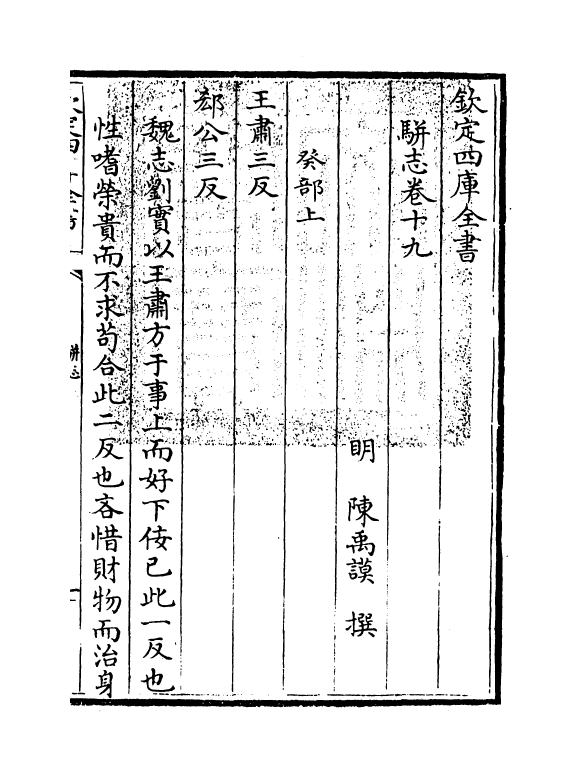 欽定四庫全書
騈志卷十九
明 陳禹謨 撰
癸部上
王肅三反
郄公三反
魏志劉寔以王肅方于事上而好下佞己此一反也
性嗜榮貴而不求苟合此二反也吝惜財物而治身
騈志